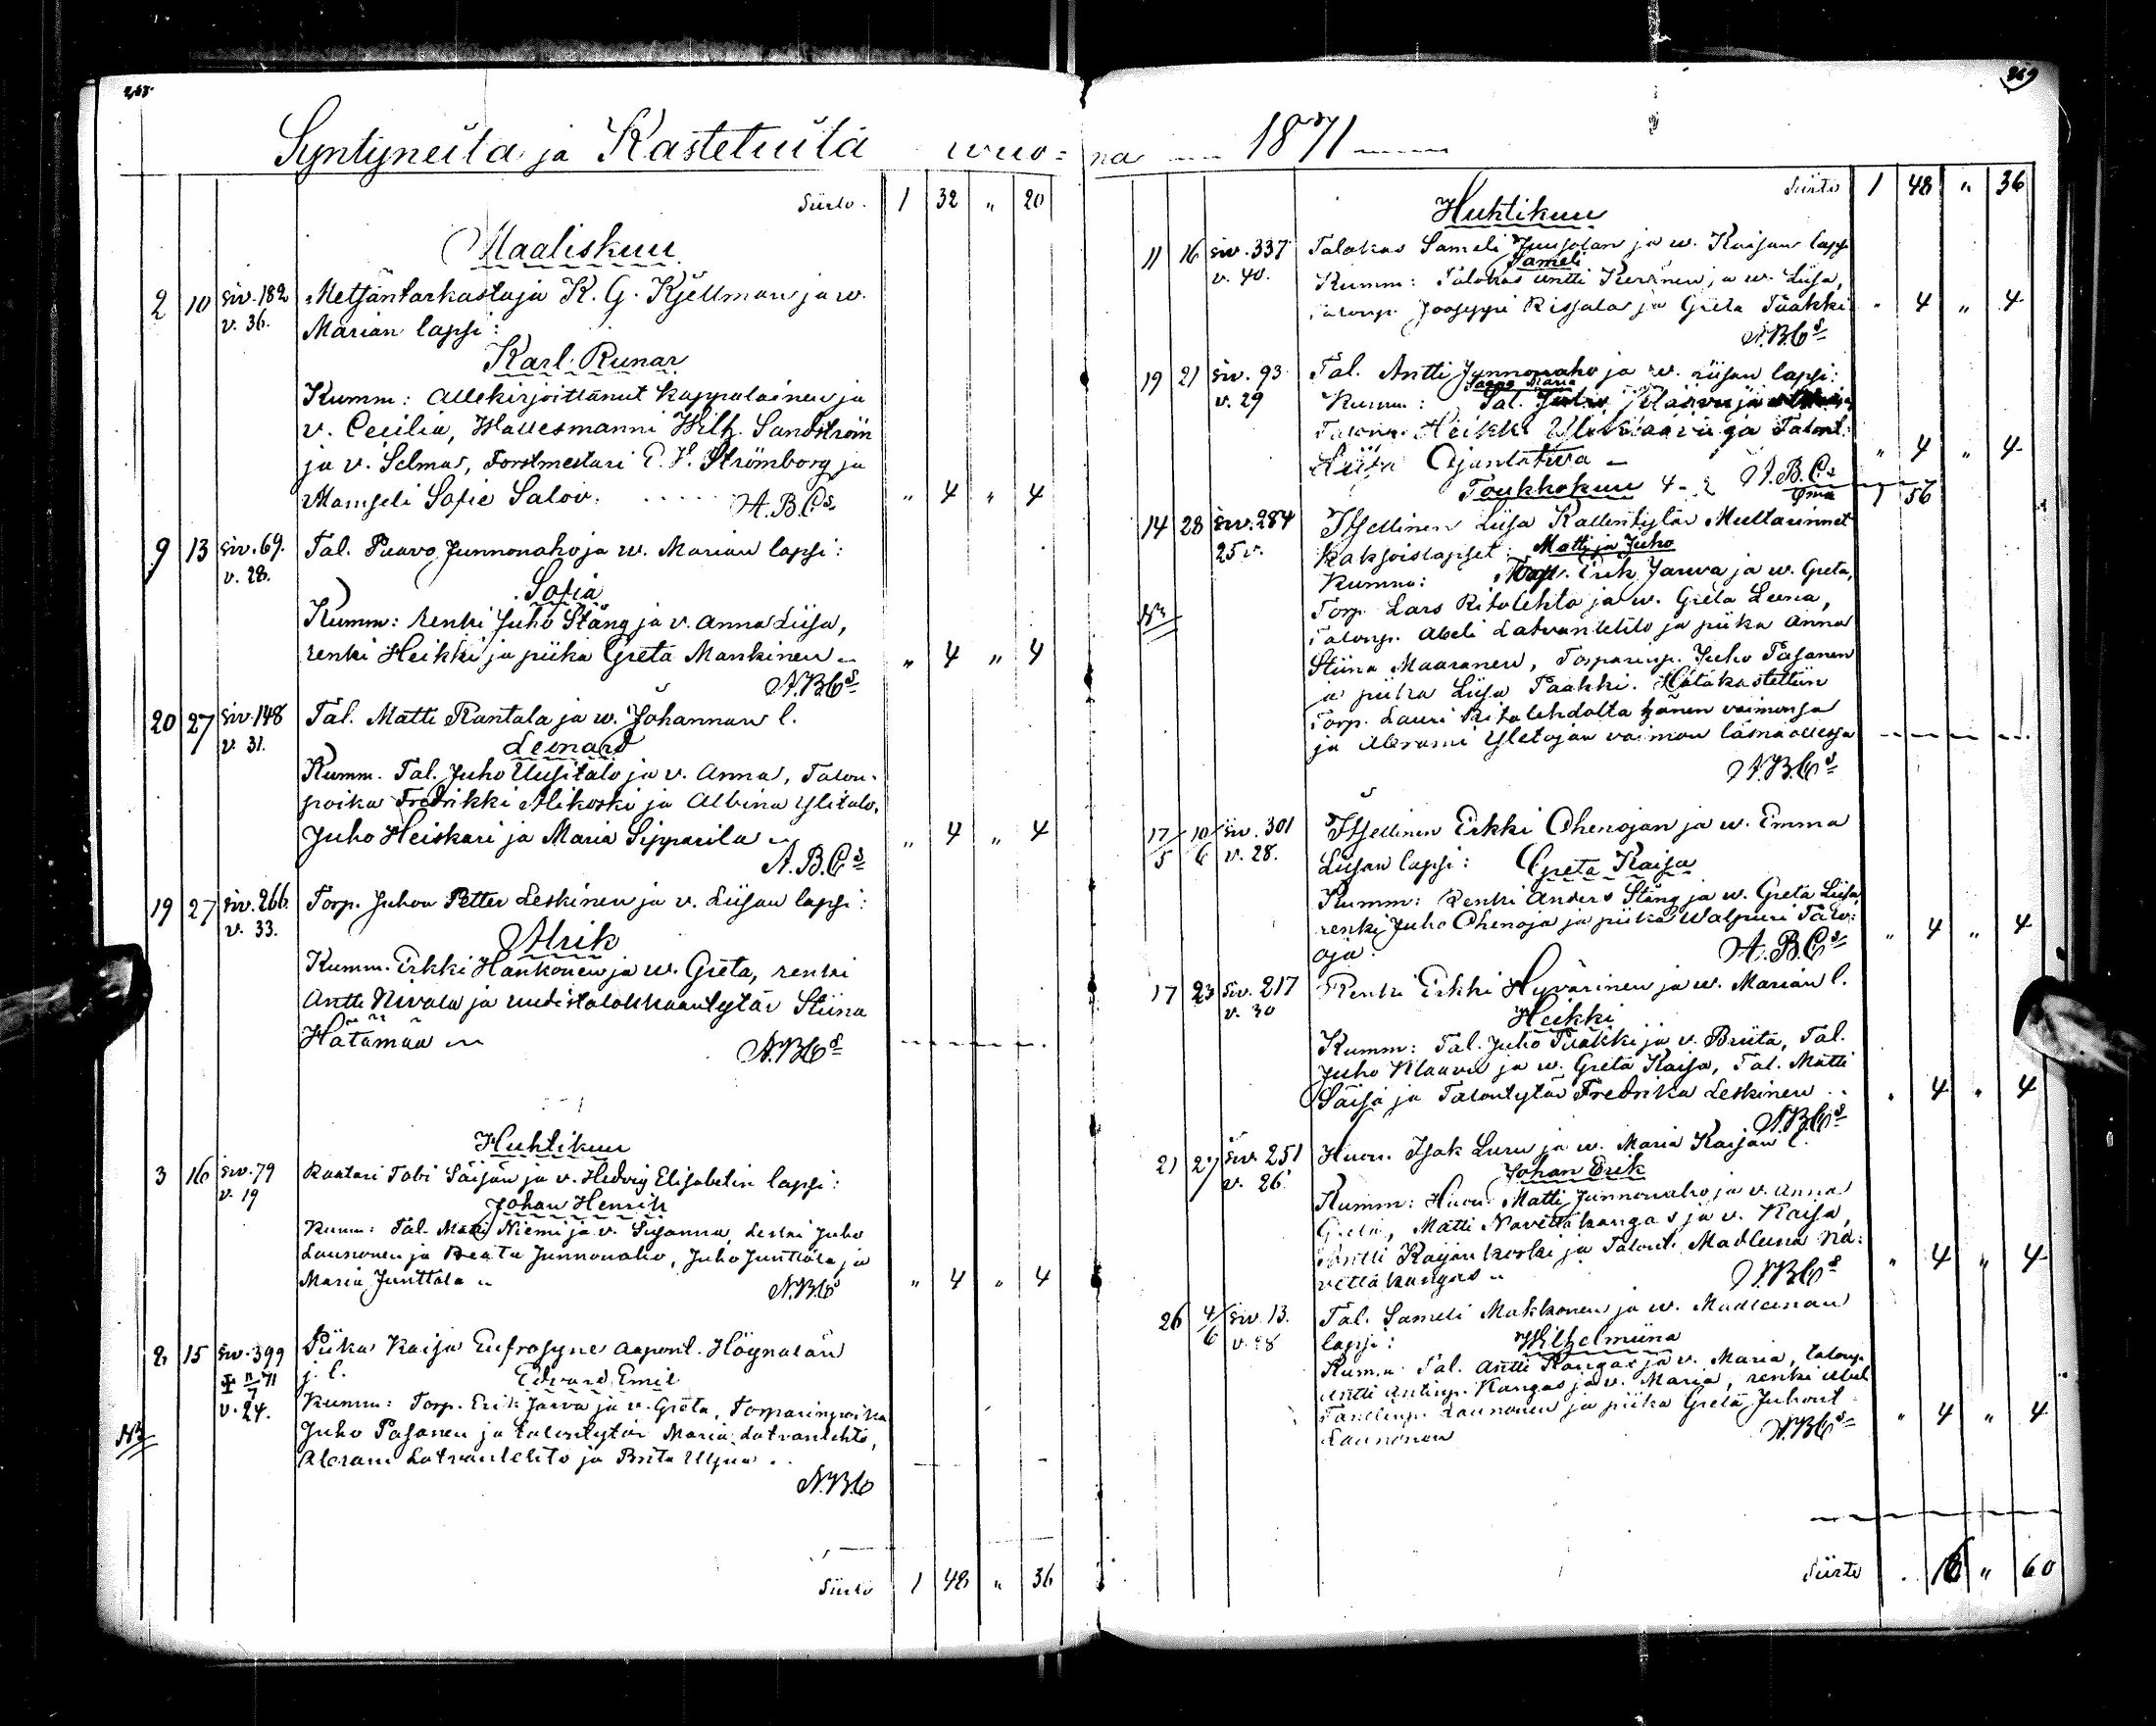 268
Syntyneitä ja Kastetuita wuo=
Siirto. 1 32 " 20
Maaliskuu
2 10 siv. 182 Metsäntarkastaja K. G. Kjellman ja w.
v. 36. Marian lapsi:
Karl Runar
Kumm: Allekirjoittanut kappalainen ja
v. Cecilia, Wallesmanni Wilh. Sandström
ja v. Selma, Forstmestari Strömborg ja
Mamseli Sofie Salov. A.B.Cs " 4 " 4
9 13 siv. 69. Tal. Paavo Junnonaho ja w. Marian lapsi:
v. 28.
Sofia
Kumm: renki Juho Stång ja v. Anna Liisa,
renki Heikki ja piika Greta Mankinen " 4 " 4
A.B.Cs
20 27 siv. 148 Tal. Matti Rantala ja w. Johannan l.
v. 31. Leonard
Kumm. Tal. Juho Uusitalo ja v. Anna, Talon-
poika Fredrikki Alikoski ja Albina Ylitalo,
Juho Heiskari ja Maria Sipparila " 4 " 4
A.B.Cs
19 27 siv. 266. Torp. Juhon Petter Leskinen ja v. Liisan lapsi:
v. 33.
Alrik
Kumm. Erkki Hankonen ja w. Greta, renki
Antti Nivala ja uudistalokkaantytär Stiina
Hätämaa A.B.Cs
Huhtikuu
3 16 siv. 79 Raatari Tobi Säijän ja v. Hedvig Elisabetin lapsi:
v. 19
Johan Henrik
Kumm: Tal. Matti Niemi ja v. Susanna, Leski Juho
Launonen ja Beata Junnonaho, Juho Junttila ja
Maria Junttila A.B.C " 4 " 4
2 15 siv. 399 Piika Kaisa Eufrosyne Aapont. Höynälän
j. l. Edvard Emil
v. 24. Kumm: Torp. Erik Jarva ja v. Greta, Torparinpoika
NB Juho Pasanen ja talontytär Maria Latvanlehto,
Abram Latvanlehto ja Brita Uljua
A.B.C
Siirto 1 48 " 36
269
na 1871
Siirto 1 48 " 36
Huhtikuu
11 16 siv. 337 Talokas Sameli Juusolan ja w. Kaisan lapsi
v. 40. Sameli
Kumm: Talokas Antti Keränen ja w. Liisa,
Talonp. Jooseppi Rissala ja Greta Paakki " 4 " 4
A.B.Cs
19 21 siv. 93 Tal. Antti Junnonaho ja w. Liisan lapsi:
v. 29 Maria
Kumm: Tal.
Talonp. Heikki ja Talont.
" 4 " 4
A.B.Cs
Toukokuu 1 56
14 28 siv. 284 Itsellinen Liisa Kallentytär Multarinnet
25 v. kaksoislapset: Matti ja Juho
Kumm: Torp. Erik Jarva ja w. Greta,
NB Torp. Lars Ritolehto ja w. Greta Leena,
Talonp. Abeli Latvanlehto ja piika Anna
Stiina Maaranen, Torparinp. Juho Pasanen
ja piika Liisa Paakki. Hätäkastettiin
Torp. Lauri Ritolehdolta hänen vaimonsa
ja Abrami Yletojan vaimon läsnäollessa
A.B.Cs
17/5 10/6 siv. 301 Itsellinen Erkki Ohenojan ja w. Emma
v. 28. Liisan lapsi: Greta Kaisa
Kumm: Renki Anders Stång ja w. Greta Liisa,
renki Juho Ohenoja ja piika Walpuri
oja. A.B.Cs " 4 " 4
17 23 siv. 217 Renki Erkki Hyvärinen ja w. Marian l.
v. 30 Heikki
Kumm: Tal. Juho Paakki ja v. Briita, Tal.
Juho Klaavu ja w. Greta Kaisa, Tal. Matti
Säijä ja Talontytär Fredrika Leskinen " 4 " 4
A.B.Cs
21 27 siv. 251 Huon. Isak Luru ja w. Maria Kaisan l.
v. 26. Johan Erik
Kumm: Huon. Matti Junnonaho ja v. Anna
Greta, Matti Navettakangas ja v. Kaisa,
Antti Kaijankoski ja Talont. Madleena Na-
vettakangas A.B.Cs " 4 " 4
26 4/6 siv. 13. Tal. Sameli Makkonen ja w. Madleenan
lapsi: Wilhelmiina
Kumm. Tal. Antti Kangas ja v. Maria, talonp.
Antti Antinp. Kangas ja v. Maria, renki Abel
Launonen ja piika Greta Juhont.
Launonen A.B.Cs " 4 " 4
Siirto " 60